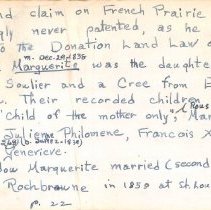 nd claim on French Prairie
gly never patented, as he
to the Donation Land Law o
m. Dec. 29, 1836
Marguerite was the daughte
Soulier and a Cree from E
. Their recorded children
Rous
child of the mother only; Mar
Julienne Philomene, Francois X
Genevieve.
ow Marguerite married (second
Rochbrune in 1859 at St. Lou
p. 22